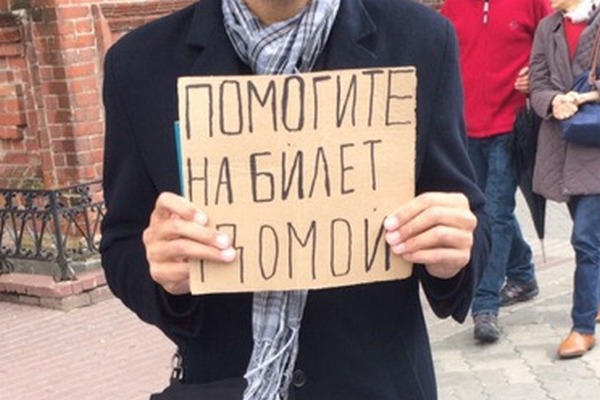 ПОМОГИТЕ
НА БИЛЕТ
ДОМОЙ